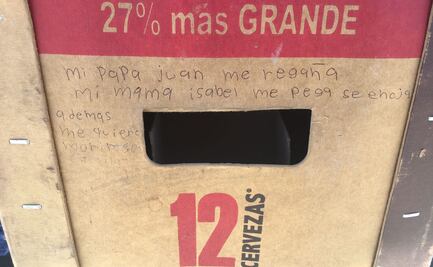 27% mas GRANDE
mi papa juan me regaña
mi mama isabel me pega se enoja
ademas
me quiero
12
CERVEZAS